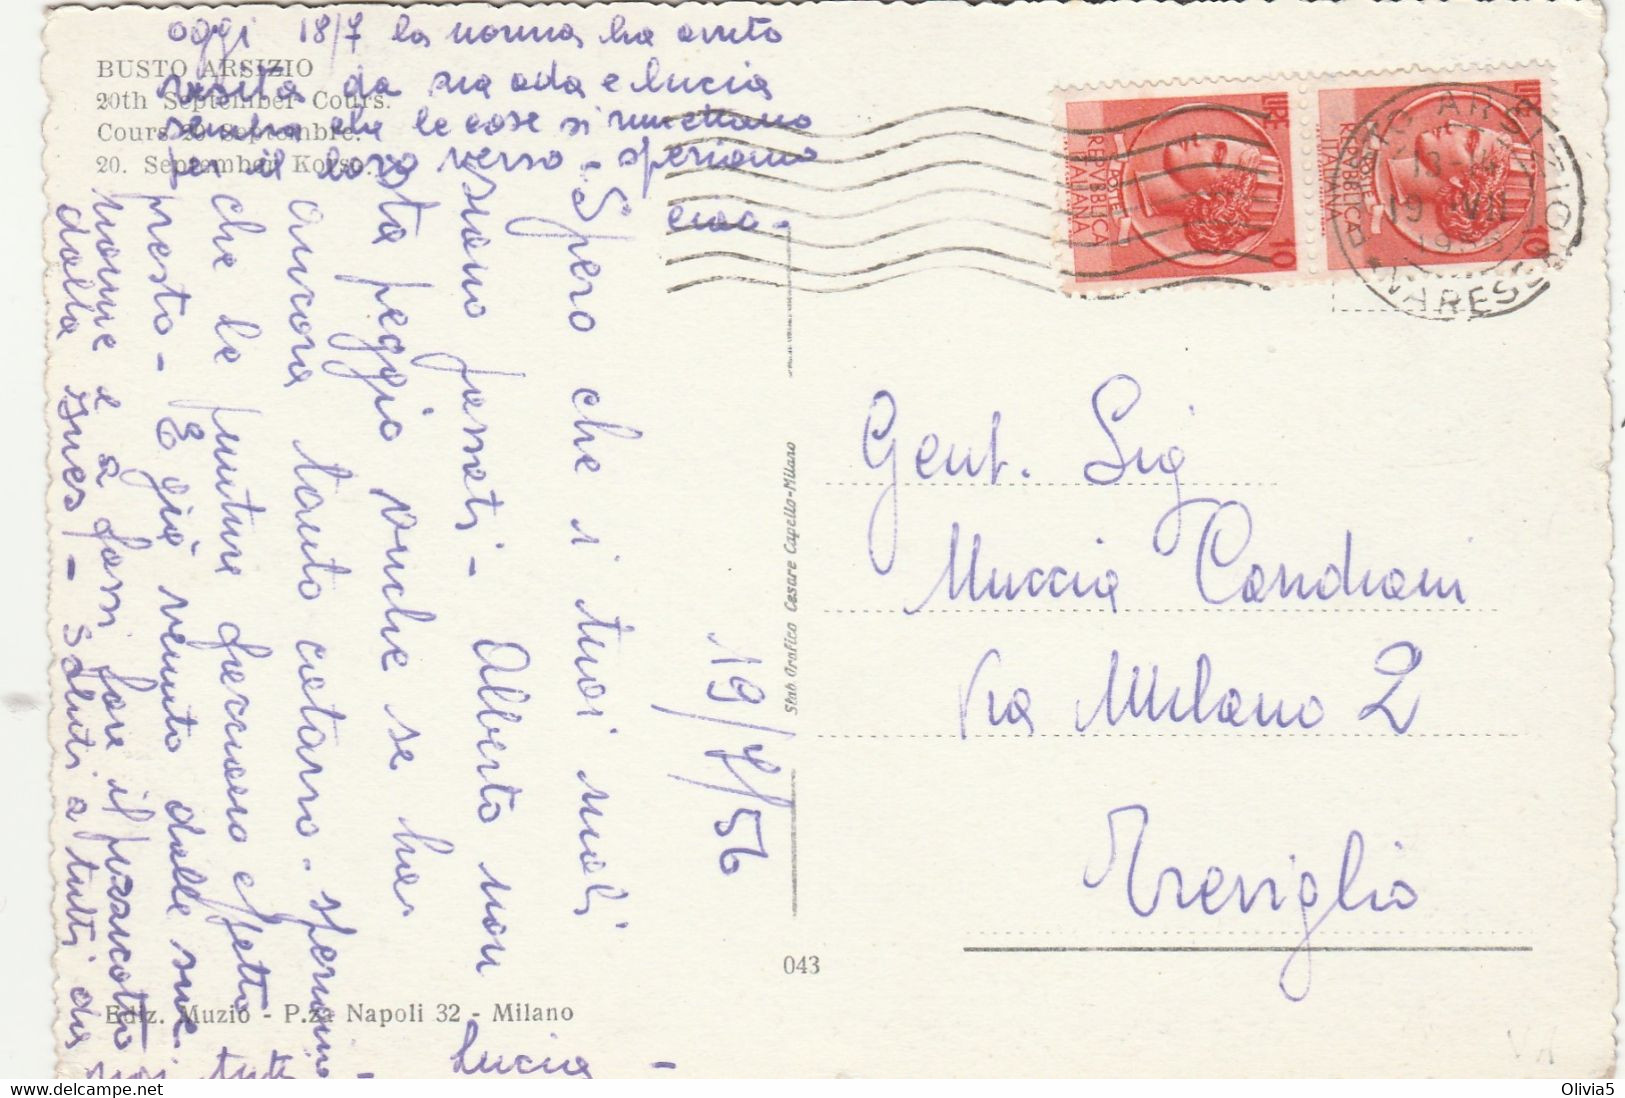 oggi 18/7 la nonna ha avuto
visita da zia ada e lucia
sembra che le cose si rimettano
per il loro verso - speriamo
ciao -
BUSTO ARSIZIO
20th September Cours.
Cours 20 Septembre.
20. September Korso.
19/7/56
Spero che i tuoi mali
siano passati - Alberto non
sta peggio anche se ha
ancora tanto catarro - speriamo
che le punture facciano effetto
presto - E già venuto dalle sue
nonne e a fassi fare il
dalla Ines! - Saluti a tutti da
noi tutti - Lucia -
POSTE
REPVBBLICA
ITALIANA
LIRE 10
POSTE
REPVBBLICA
ITALIANA
LIRE 10
BUSTO ARSIZIO
13-14
19 VII
1956
* VARESE *
Gent. Sig
Muccia Candiani
Via Milano 2
Treviglio
Stab. Grafico Cesare Capello-Milano
043
Ediz. Muzio - P.za Napoli 32 - Milano
VA
delcampe.net
Olivia5